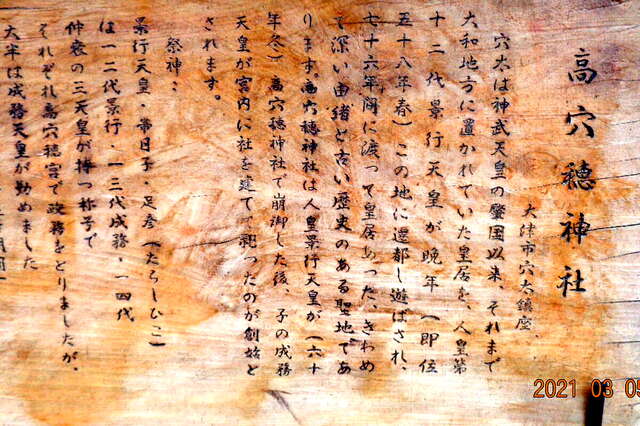 高穴穂神社
大津市穴太鎮座
穴太は神武天皇の肇国以来、それまで
大和地方に置かれていた皇居を、人皇第
十二代景行天皇が晩年(即位
五十八年春)この地に遷都し遊ばされ、
七十六年間に渡って皇居あった、きわめ
て深い由緒と古い歴史のある聖地であ
ります。高穴穂神社は人皇景行天皇が(六十
年冬)高穴穂神社で崩御した後、子の成務
天皇が宮内に社を建てて祀ったのが創始と
されます。
祭神:
景行天皇・帯日子・足彦(たらしひこ)
は一二代景行・一三代成務・一四代
仲哀の三天皇が持つ称号で
それぞれ高穴穂宮で政務をとりましたが、
大半は成務天皇が勤めました
2021 03 05